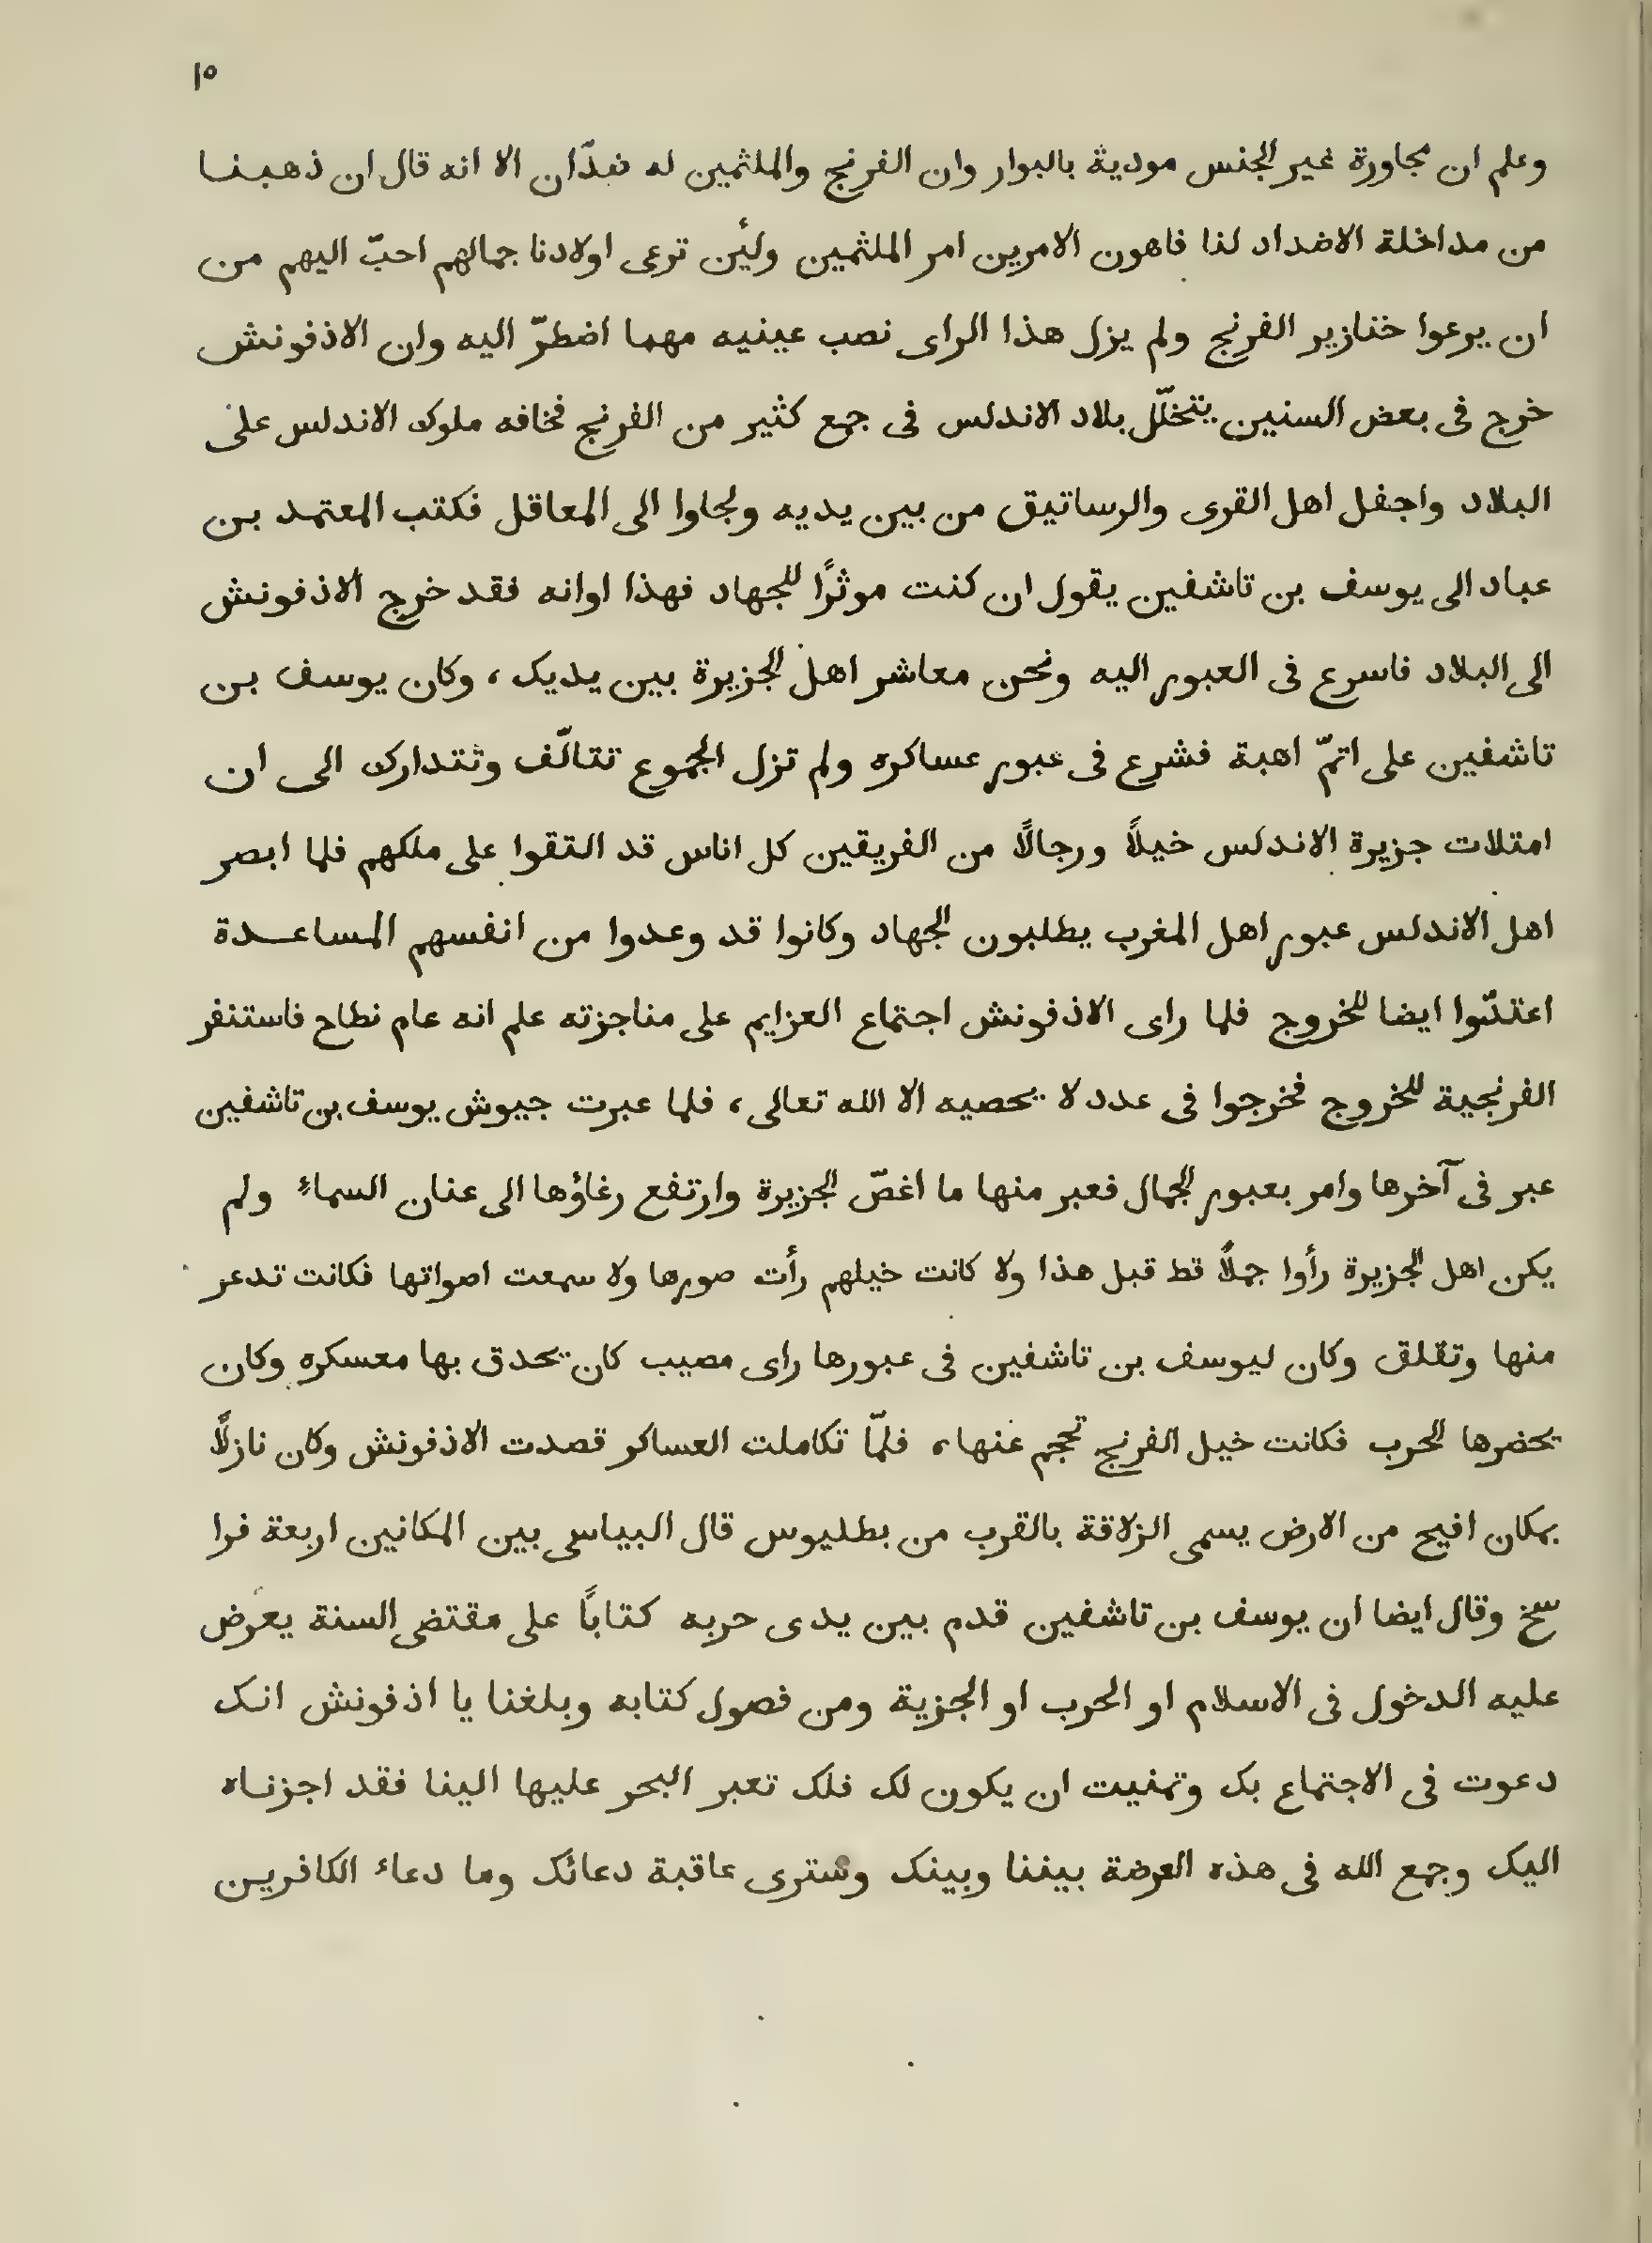 ١٥
وعلم ان مجاورة غير الجنس موذية بالبوار وان الفرنج والملثمين له ضدّان الا انه قال ان ذهبنا
من مداخلة الاضداد لنا فاهون الامرين امر الملثمين ولئن ترعى اولادنا جمالهم احبّ اليهم من
ان يرعوا خنازير الفرنج ولم يزل هذا الراى نصب عينيه مهما اضطرّ اليه وان الاذفونش
خرج فى بعض السنين يتخلّل بلاد الاندلس فى جمع كثير من الفرنج فخافه ملوك الاندلس على
البلاد واجفل اهل القرى والرساتيق من بين يديه ولجاوا الى المعاقل فكتب المعتمد بن
عباد الى يوسف بن تاشفين يقول ان كنت موثرًا للجهاد فهذا اوانه فقد خرج الاذفونش
الى البلاد فاسرع فى العبور اليه ونحن معاشر اهل الجزيرة بين يديك ، وكان يوسف بن
تاشفين على اتمّ اهبة فشرع فى عبور عساكره ولم تزل الجموع تتالّف وتتدارك الى ان
امتلات جزيرة الاندلس خيلاً ورجالًا من الفريقين كل اناس قد التقوا على ملكهم فلما ابصر
اهل الاندلس عبور اهل المغرب يطلبون الجهاد وكانوا قد وعدوا من انفسهم المساعدة
اعتدّوا ايضا للخروج فلما راى الاذفونش اجتماع العزايم على مناجزته علم انه عام نطاح فاستنفر
الفرنجية للخروج فخرجوا فى عدد لا يحصيه الا الله تعالى ، فلما عبرت جيوش يوسف بن تاشفين
عبر فى آخرها وامر بعبور الجمال فعبر منها ما اغصّ الجزيرة وارتفع رغاؤها الى عنان السماء ولم
يكن اهل الجزيرة رأوا جملًا قط قبل هذا ولا كانت خيلهم رأت صورها ولا سمعت اصواتها فكانت تدعر
منها وتقلق وكان ليوسف بن تاشفين فى عبورها راى مصيب كان يحدق بها معسكره وكان
يحضرها الحرب فكانت خيل الفرنج تحجم عنها ، فلمّا تكاملت العساكر قصدت الاذفونش وكان نازلًا
بمكان افيح من الارض يسمى الزلاقة بالقرب من بطليوس قال البياسى بين المكانين اربعة فرا
سخ وقال ايضا ان يوسف بن تاشفين قدم بين يدى حربه كتابًا على مقتضى السنة يعرض
عليه الدخول فى الاسلام او الحرب او الجزية ومن فصول كتابه وبلغنا يا اذفونش انك
دعوت فى الاجتماع بك وتمنيت ان يكون لك فلك تعبر البحر عليها الينا فقد اجزناه
اليك وجمع الله فى هذه العرصة بيننا وبينك وسترى عاقبة دعائك وما دعاء الكافرين